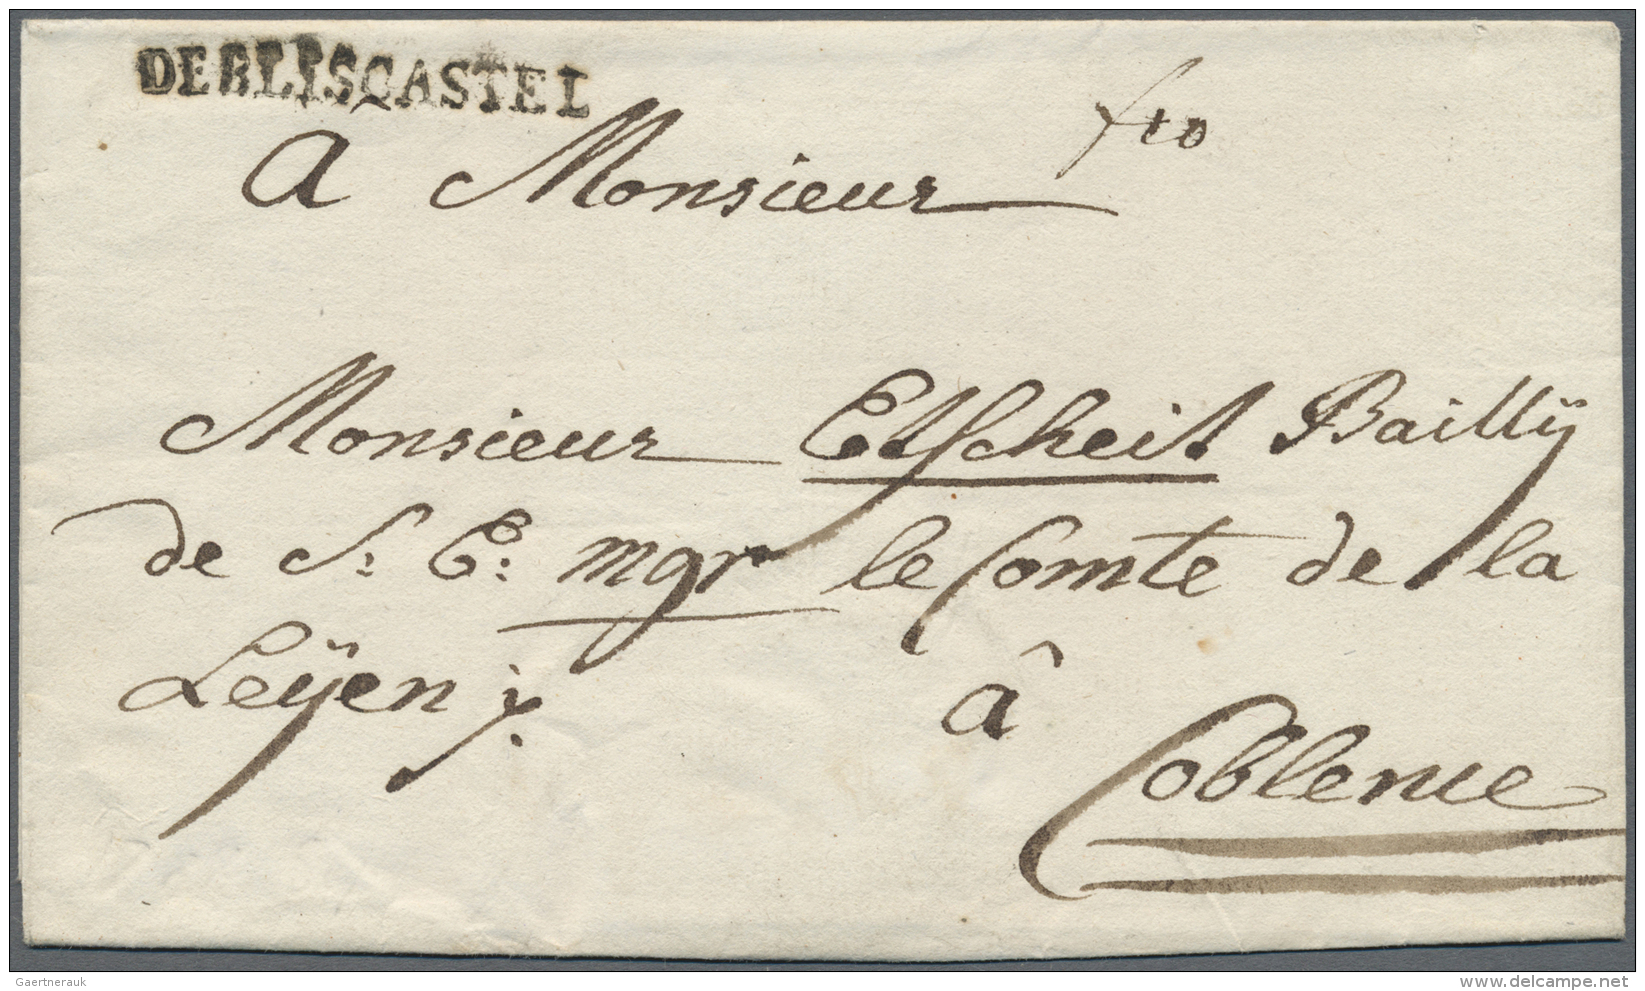 DEBLISCASTEL
fro
à Monsieur
Monsieur Etscheit Baillÿ
de S: E: mgr le Comte de la
Leÿen
â
Coblence
Gaertnerauk
delcampe.net